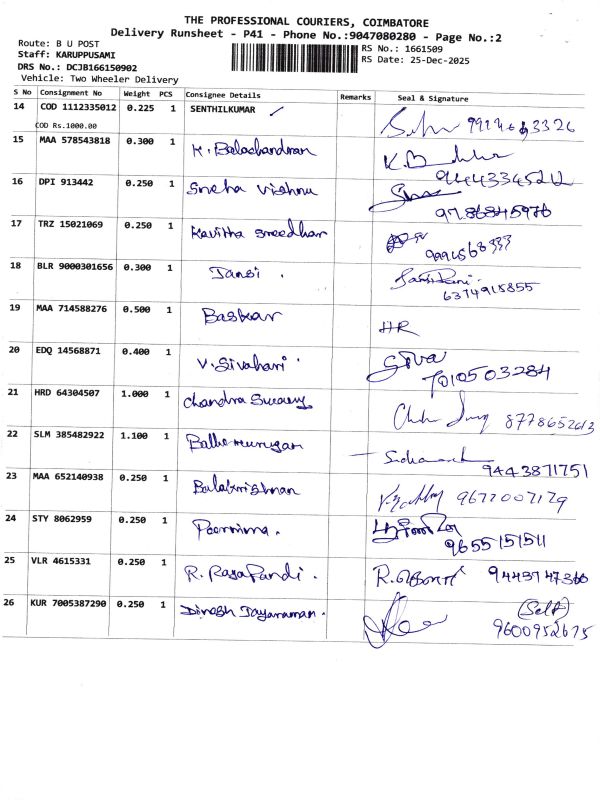 THE PROFESSIONAL COURIERS, COIMBATORE
Delivery Runsheet - P41 - Phone No.:9047080280 - Page No.:2
Route: B U POST
Staff: KARUPPUSAMI
DRS No.: DCJB166150902
Vehicle: Two Wheeler Delivery
RS No.: 1661509
RS Date: 25-Dec-2025
S No Consignment No Weight PCS Consignee Details Remarks Seal & Signature
14 COD 1112335012 0.225 1 SENTHILKUMAR
COD Rs.1000.00
15 MAA 578543818 0.300 1 K. Balachandran
16 DPI 913442 0.250 1 Sneha Vishnu
9786845976
17 TRZ 15021069 0.250 1 Kavitha Sreedhar
18 BLR 9000301656 0.300 1 Jansi .
6374915855
19 MAA 714588276 0.500 1 Baskar HR
20 EDQ 14568871 0.400 1 V. Sivahari Siva
7010503284
21 HRD 64304507 1.000 1 Chandra Swamy
22 SLM 385482922 1.100 1 Balamurugan
9443871751
23 MAA 652140938 0.250 1 Balakrishnan 9677007179
24 STY 8062959 0.250 1 Poornima.
9655151511
25 VLR 4615331 0.250 1 R. RajaPandi .
26 KUR 7005387290 0.250 1 Dinesh Jayaraman. (Self)
9600952675